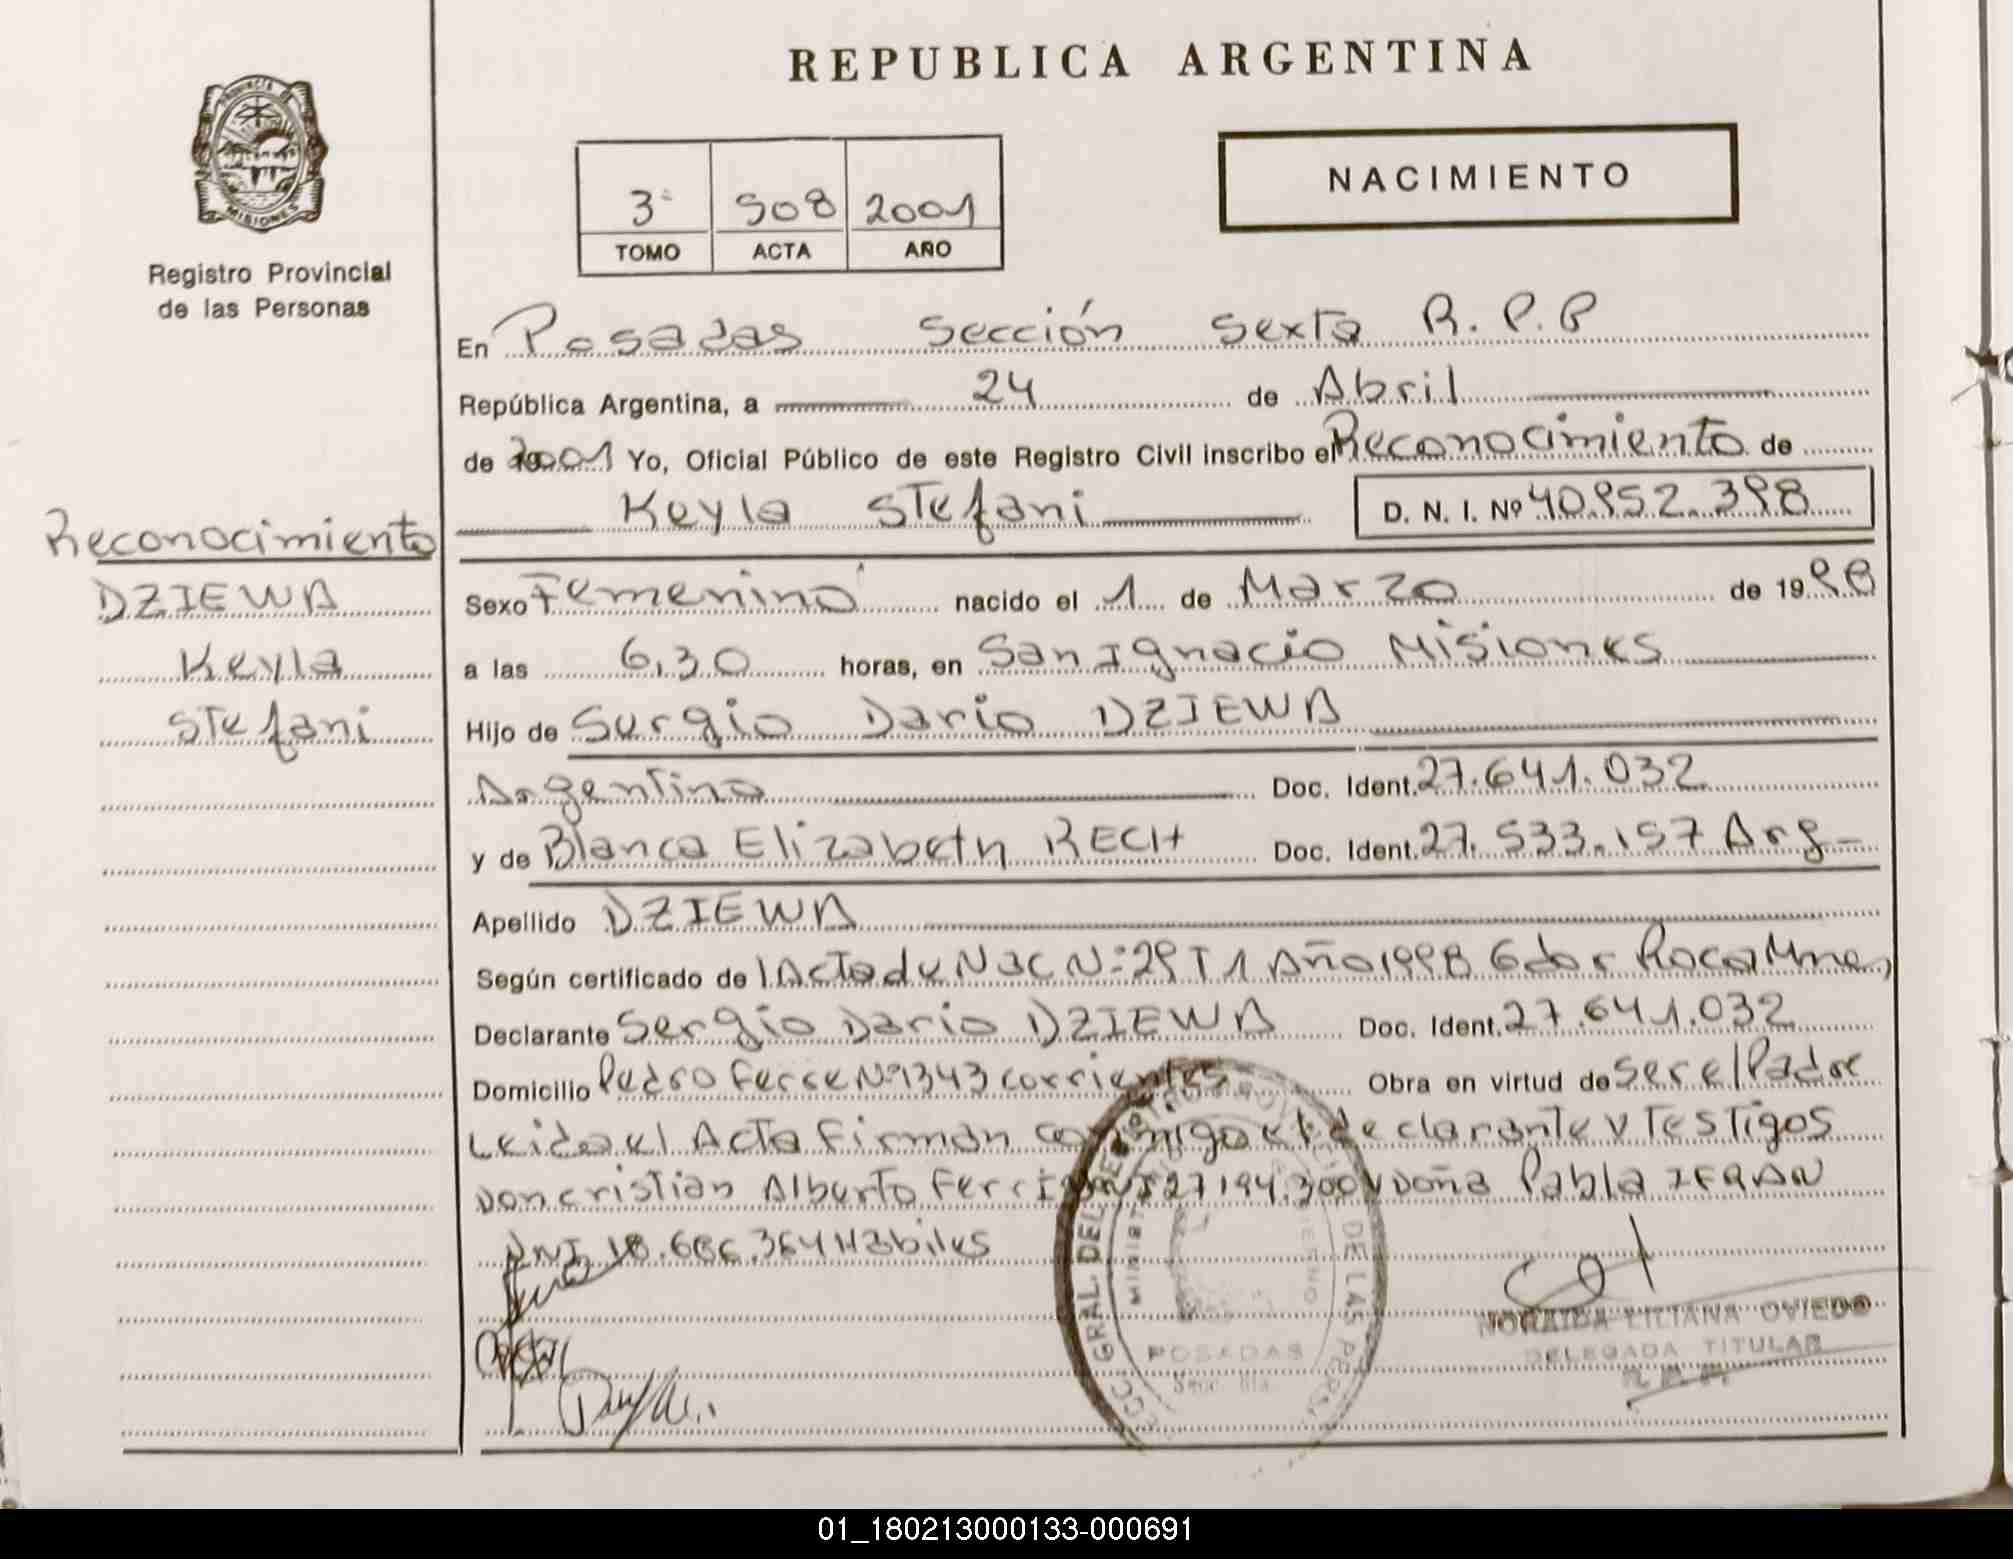 REPUBLICA ARGENTINA
PROVINCIA DE
MISIONES
Registro Provincial
de las Personas
3ª 508 2001
TOMO ACTA AÑO
NACIMIENTO
En Posadas Sección Sexta R.P.P
República Argentina, a 24 de Abril
de 2001 Yo, Oficial Público de este Registro Civil inscribo el Reconocimiento de
Keyla Stefani D. N. I. Nº 40.952.398
Reconocimiento
DZIEWA
Keyla
Stefani
Sexo Femenino nacido el 1 de Marzo de 1998
a las 6,30 horas, en San Ignacio Misiones
Hijo de Sergio Dario DZIEWA
Argentino Doc. Ident. 27.641.032
y de Blanca Elizabeth RECH Doc. Ident. 27.533.157 Arg-
Apellido DZIEWA
Según certificado de l Acta de Nac Nº 29 T 1 Año 1998 Gdor Roca Mnes,
Declarante Sergio Dario DZIEWA Doc. Ident. 27.641.032
Domicilio Pedro Ferre Nº 1343 corrientes Obra en virtud de Ser el Padre
Leida el Acta Firman conmigo el declarante y Testigos
Don cristian Alberto Ferr DNI 27194.300 y Doña Pabla
DNI 18.686.364 Habiles
POSADAS
NORAIDA LILIANA OVIEDO
DELEGADA TITULAR
01_180213000133-000691